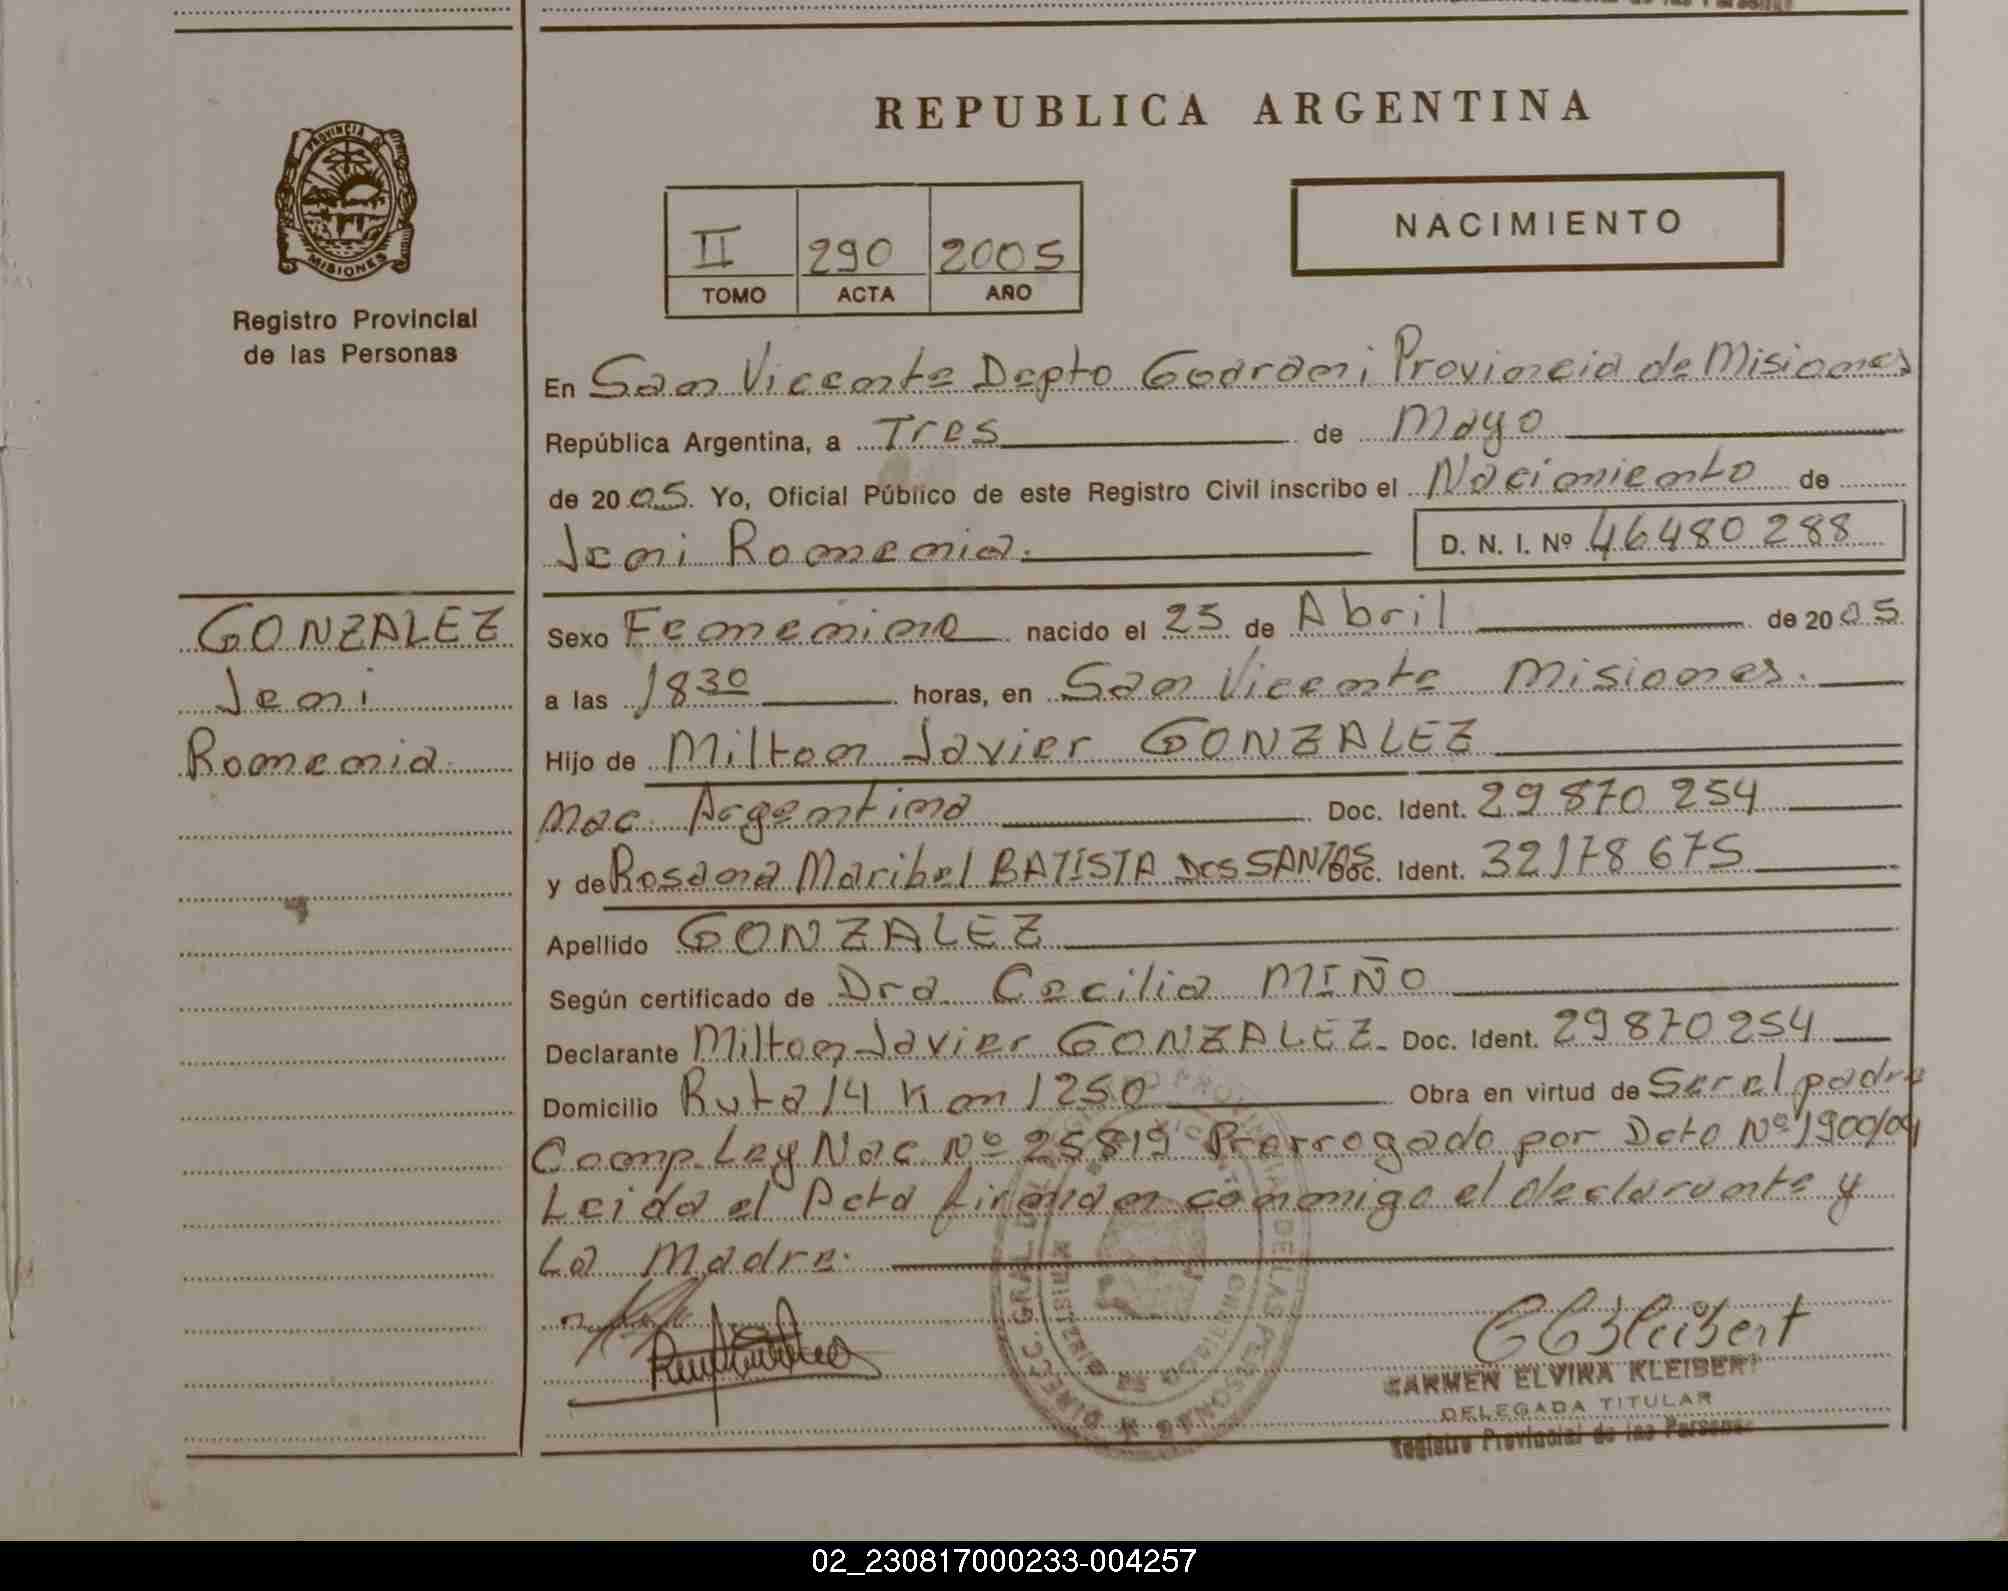 REPUBLICA ARGENTINA
PROVINCIA DE
MISIONES
Registro Provincial
de las Personas
NACIMIENTO
II 290 2005
TOMO ACTA AÑO
En San Vicente Depto Guarani Provincia de Misiones
República Argentina, a Tres de Mayo
de 2005. Yo, Oficial Público de este Registro Civil inscribo el Nacimiento de
Jeni Romenia. D. N. I. Nº 46480288
GONZALEZ
Jeni
Romenia.
Sexo Femenino nacido el 23 de Abril de 2005.
a las 1830 horas, en San Vicente Misiones.
Hijo de Milton Javier GONZALEZ
Nac. Argentina Doc. Ident. 29870254
y de Rosana Maribel BATISTA DOS SANTOS Doc. Ident. 32178675
Apellido GONZALEZ
Según certificado de Dra Cecilia MIÑO
Declarante Milton Javier GONZALEZ Doc. Ident. 29870254
Domicilio Ruta 14 Km 1250 Obra en virtud de Ser el padre
Comp. Ley Nac Nº 25819 Prorrogado por Dcto Nº 1900/04
Leida el Acta firman conmigo el declarante y
La Madre.
CARMEN ELVIRA KLEIBERT
DELEGADA TITULAR
Registro Provincial de las Personas
02_230817000233-004257